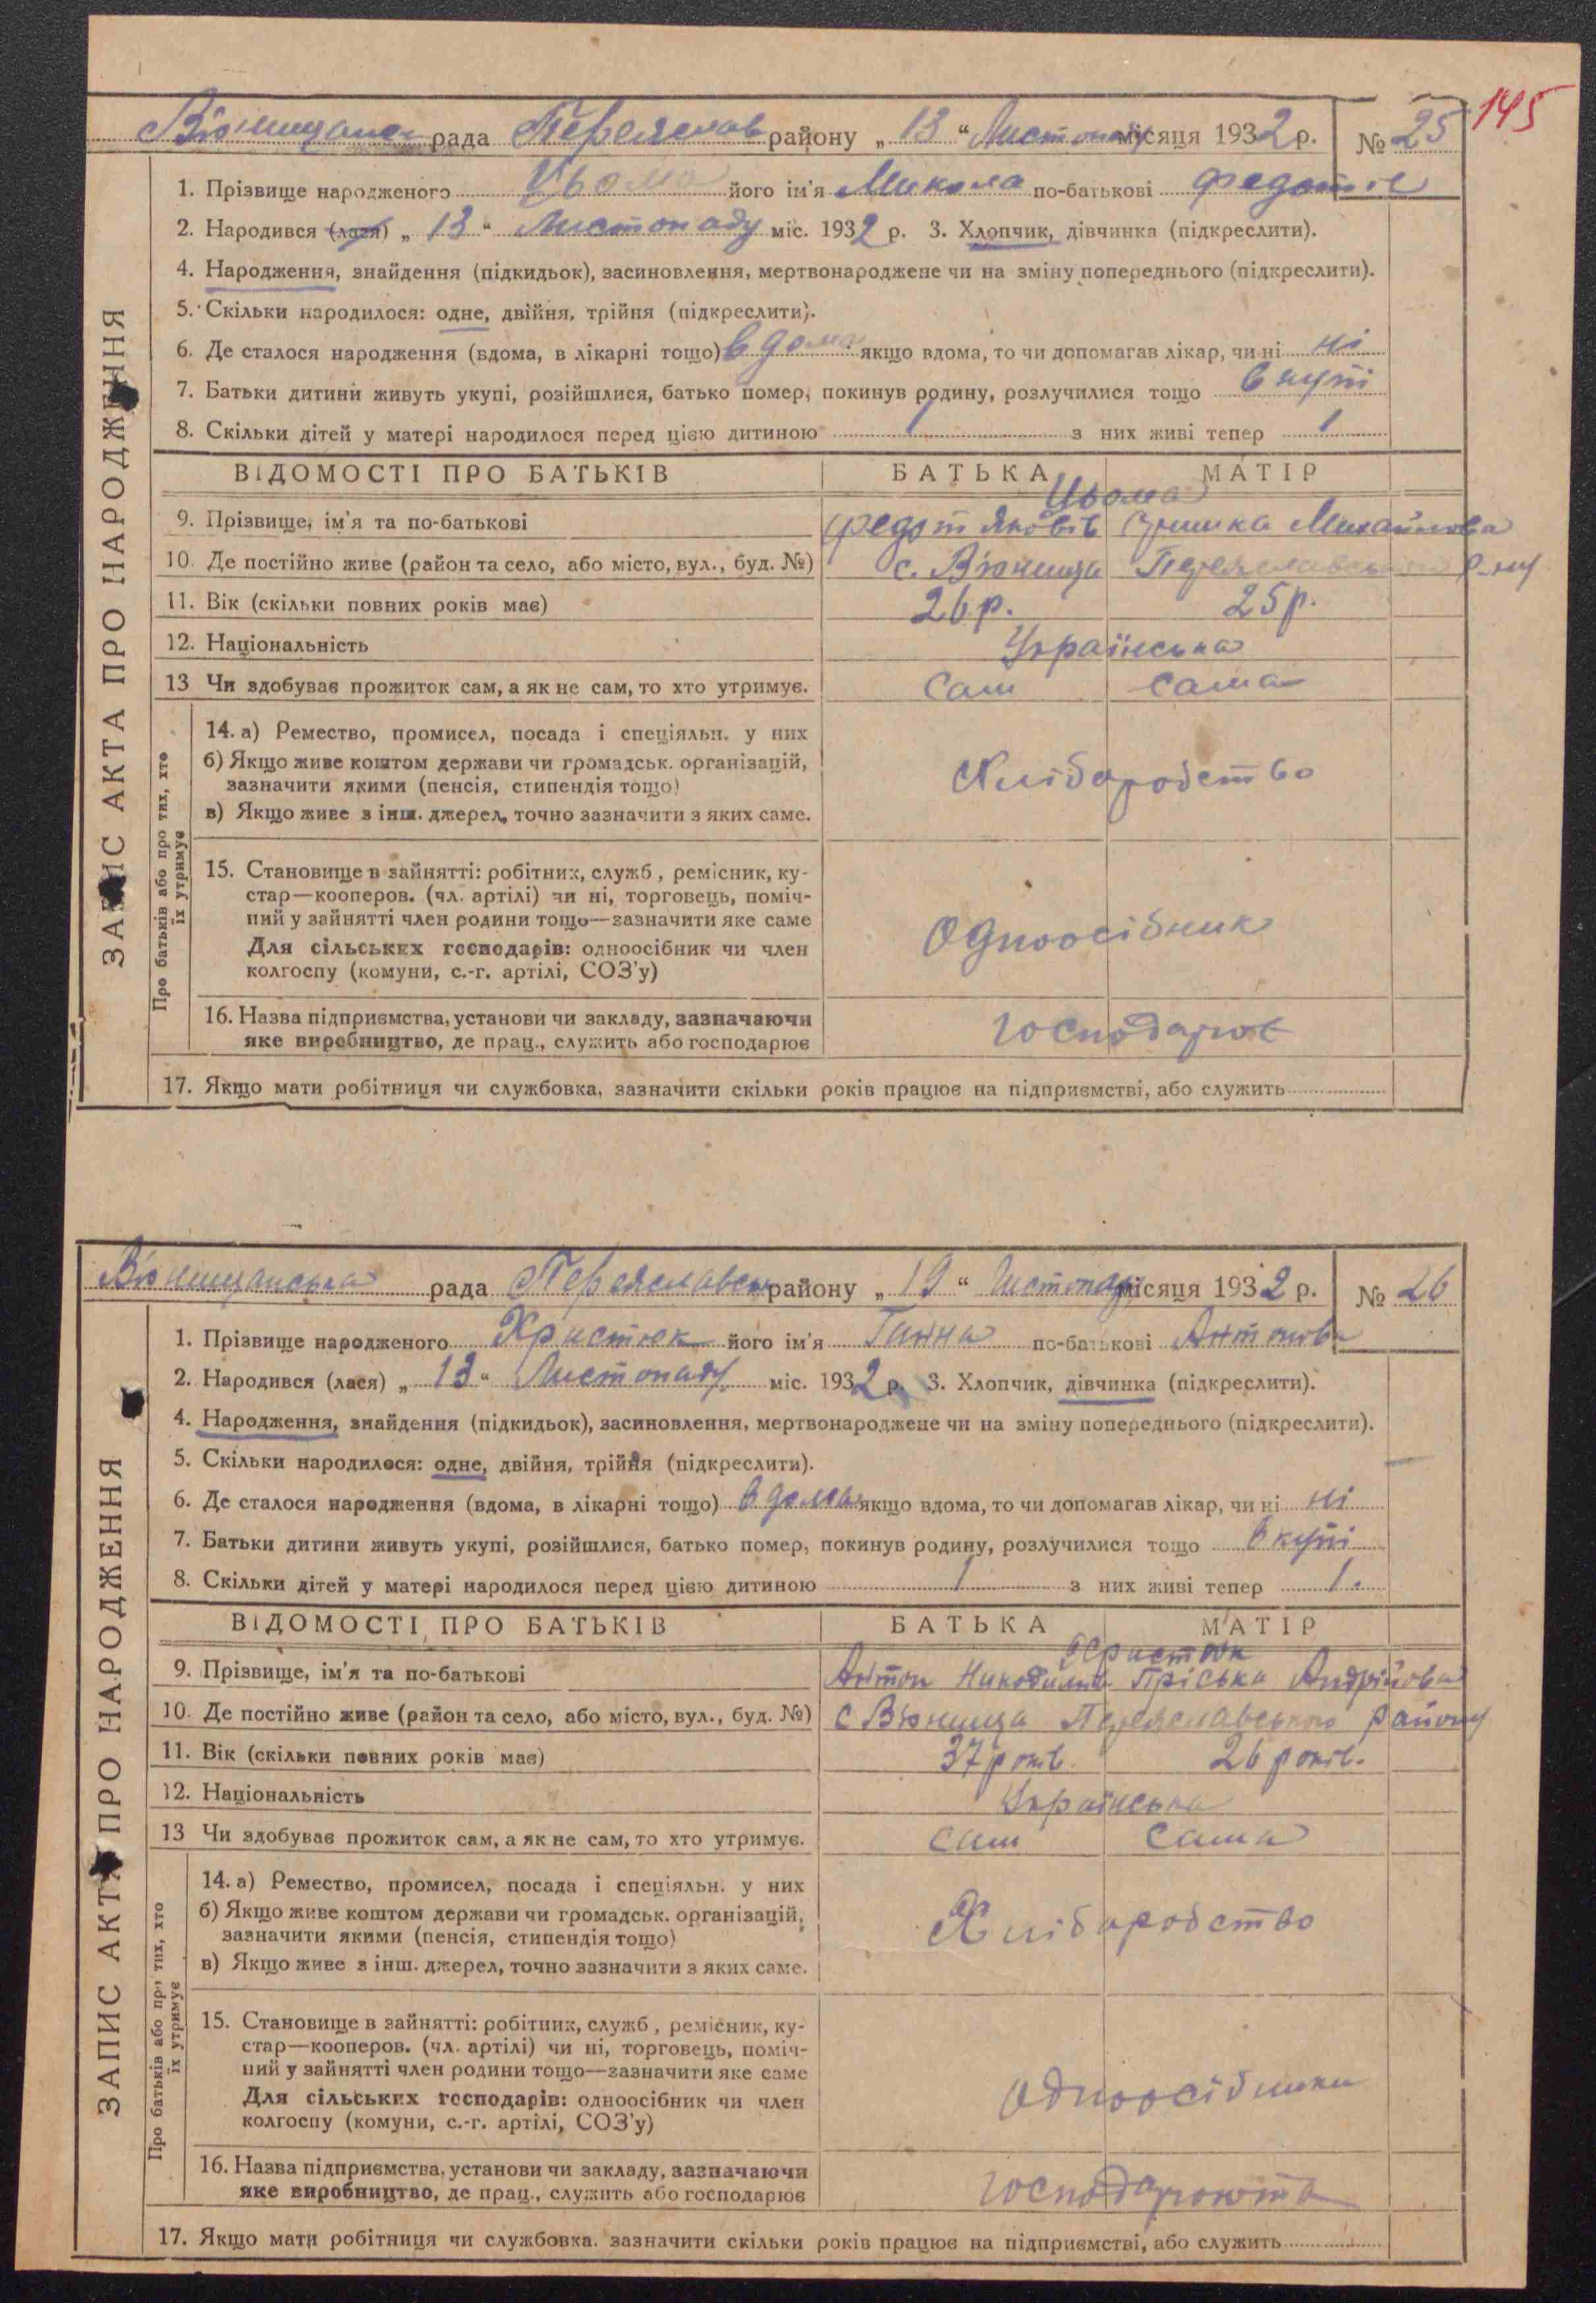 145
В'юнищанс рада Переяслав району „ 13 “ Листопаду місяця 1932 р. № 25
ЗАПИС АКТА ПРО НАРОДЖЕННЯ
1. Прізвище народженого Цьома його ім'я Микола по-батькові Федотів
2. Народився (лася) „ 13 “ Листопаду міс. 1932 р. 3. Хлопчик, дівчинка (підкреслити).
4. Народження, знайдення (підкидьок), засиновлення, мертвонароджене чи на зміну попереднього (підкреслити).
5. Скільки народилося: одне, двійня, трійня (підкреслити).
6. Де сталося народження (вдома, в лікарні тощо) вдома якщо вдома, то чи допомагав лікар, чи ні ні
7. Батьки дитини живуть укупі, розійшлися, батько помер, покинув родину, розлучилися тощо вкупі
8. Скільки дітей у матері народилося перед цією дитиною 1 з них живі тепер 1
ВІДОМОСТІ ПРО БАТЬКІВ БАТЬКА МАТІР
Цьома
9. Прізвище, ім'я та по-батькові Федот Яковів Михайлова
10. Де постійно живе (район та село, або місто, вул., буд. №) с. В'юнища Переяславського р-ну
11. Вік (скільки повних років має) 26 р. 25 р.
12. Національність Українська
13 Чи здобуває прожиток сам, а як не сам, то хто утримує. Сам сама
Про батьків або про тих, хто
їх утримує
14. а) Ремество, промисел, посада і спеціяльн. у них
б) Якщо живе коштом держави чи громадськ. організацій,
зазначити якими (пенсія, стипендія тощо)
в) Якщо живе з інш. джерел, точно зазначити з яких саме.
Хліборобство
15. Становище в зайнятті: робітник, служб, ремісник, ку-
стар—кооперов. (чл. артілі) чи ні, торговець, поміч-
ний у зайнятті член родини тощо—зазначити яке саме
Для сільських господарів: одноосібник чи член
колгоспу (комуни, с.-г. артілі, СОЗ'у)
Одноосібник
16. Назва підприємства, установи чи закладу, зазначаючи
яке виробництво, де прац., служить або господарює
господарює
17. Якщо мати робітниця чи службовка, зазначити скільки років працює на підприємстві, або служить
В'юнищанська рада Переяславськ району „ 19 “ Листопаду місяця 1932 р. № 26
ЗАПИС АКТА ПРО НАРОДЖЕННЯ
1. Прізвище народженого Христюк його ім'я Ганна по-батькові Антонова
2. Народився (лася) „ 13 “ Листопаду міс. 1932 р. 3. Хлопчик, дівчинка (підкреслити).
4. Народження, знайдення (підкидьок), засиновлення, мертвонароджене чи на зміну попереднього (підкреслити).
5. Скільки народилося: одне, двійня, трійня (підкреслити).
6. Де сталося народження (вдома, в лікарні тощо) вдома якщо вдома, то чи допомагав лікар, чи ні ні
7. Батьки дитини живуть укупі, розійшлися, батько помер, покинув родину, розлучилися тощо вкупі
8. Скільки дітей у матері народилося перед цією дитиною 1 з них живі тепер 1.
ВІДОМОСТІ ПРО БАТЬКІВ БАТЬКА МАТІР
Христюк
9. Прізвище, ім'я та по-батькові Антон Пріська Андрійова
10. Де постійно живе (район та село, або місто, вул., буд. №) с В'юнища Переяславського району
11. Вік (скільки повних років має) 37 років. 26 років.
12. Національність Українська
13 Чи здобуває прожиток сам, а як не сам, то хто утримує. сам сама
Про батьків або про тих, хто
їх утримує
14. а) Ремество, промисел, посада і спеціяльн. у них
б) Якщо живе коштом держави чи громадськ. організацій,
зазначити якими (пенсія, стипендія тощо)
в) Якщо живе з інш. джерел, точно зазначити з яких саме.
Хліборобство
15. Становище в зайнятті: робітник, служб, ремісник, ку-
стар—кооперов. (чл. артілі) чи ні, торговець, поміч-
ний у зайнятті член родини тощо—зазначити яке саме
Для сільських господарів: одноосібник чи член
колгоспу (комуни, с.-г. артілі, СОЗ'у)
одноосібники
16. Назва підприємства, установи чи закладу, зазначаючи
яке виробництво, де прац., служить або господарює
господарюють
17. Якщо мати робітниця чи службовка, зазначити скільки років працює на підприємстві, або служить